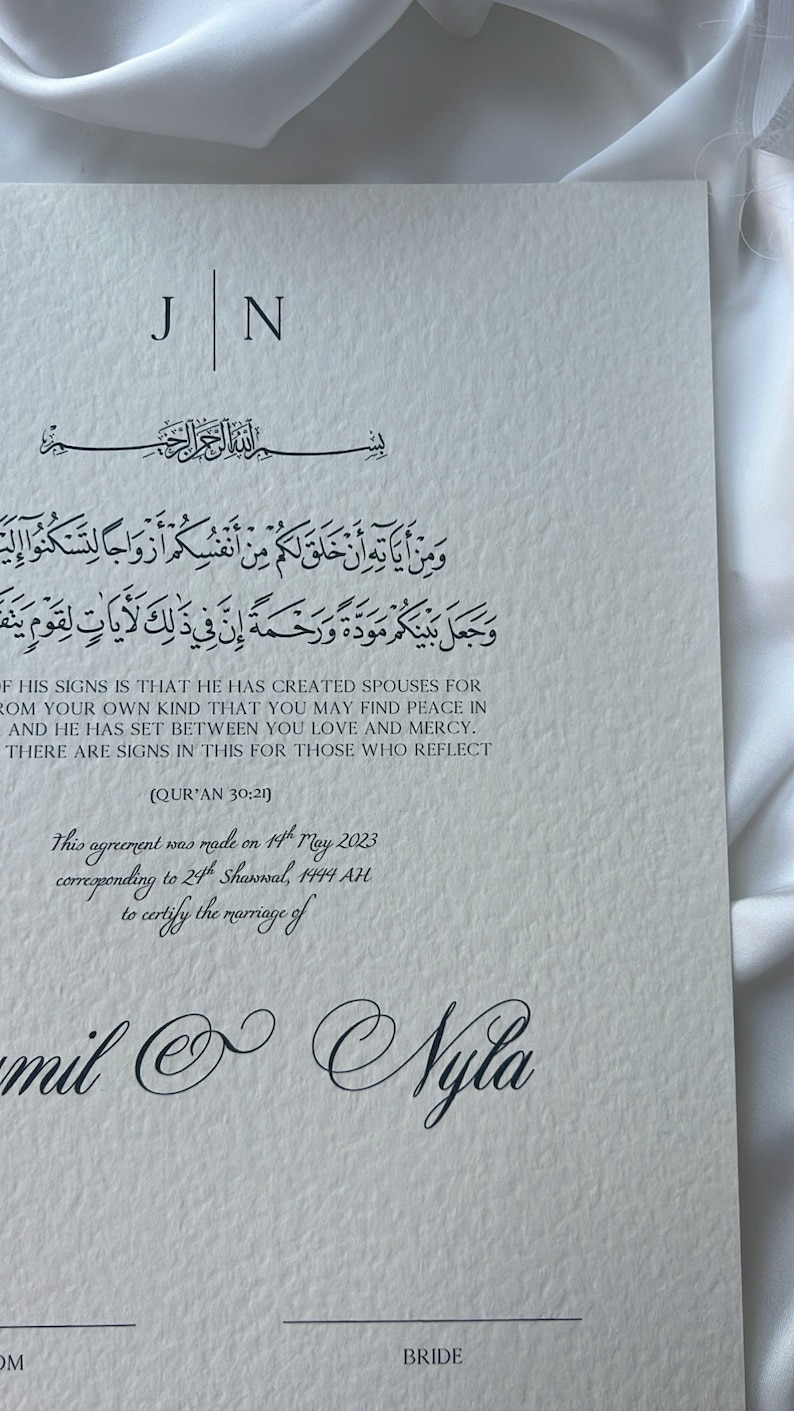 J | N
بِسْمِ اللَّهِ الرَّحْمَنِ الرَّحِيمِ
وَمِنْ أَيَاتِهِ أَنْ خَلَقَ لَكُمْ مِنْ أَنْفُسِكُمْ أَزْوَاجًا لِتَسْكُنُوا
وَجَعَلَ بَيْنَكُمْ مَوَدَّةً وَرَحْمَةً إِنَّ فِي ذَٰلِكَ لَأَيَاتٍ لِقَوْمٍ
OF HIS SIGNS IS THAT HE HAS CREATED SPOUSES FOR
FROM YOUR OWN KIND THAT YOU MAY FIND PEACE IN
AND HE HAS SET BETWEEN YOU LOVE AND MERCY.
THERE ARE SIGNS IN THIS FOR THOSE WHO REFLECT
(QUR'AN 30:21)
This agreement was made on 14th May 2023
corresponding to 24th Shawwal, 1444 AH
to certify the marriage of
& Nyla
BRIDE